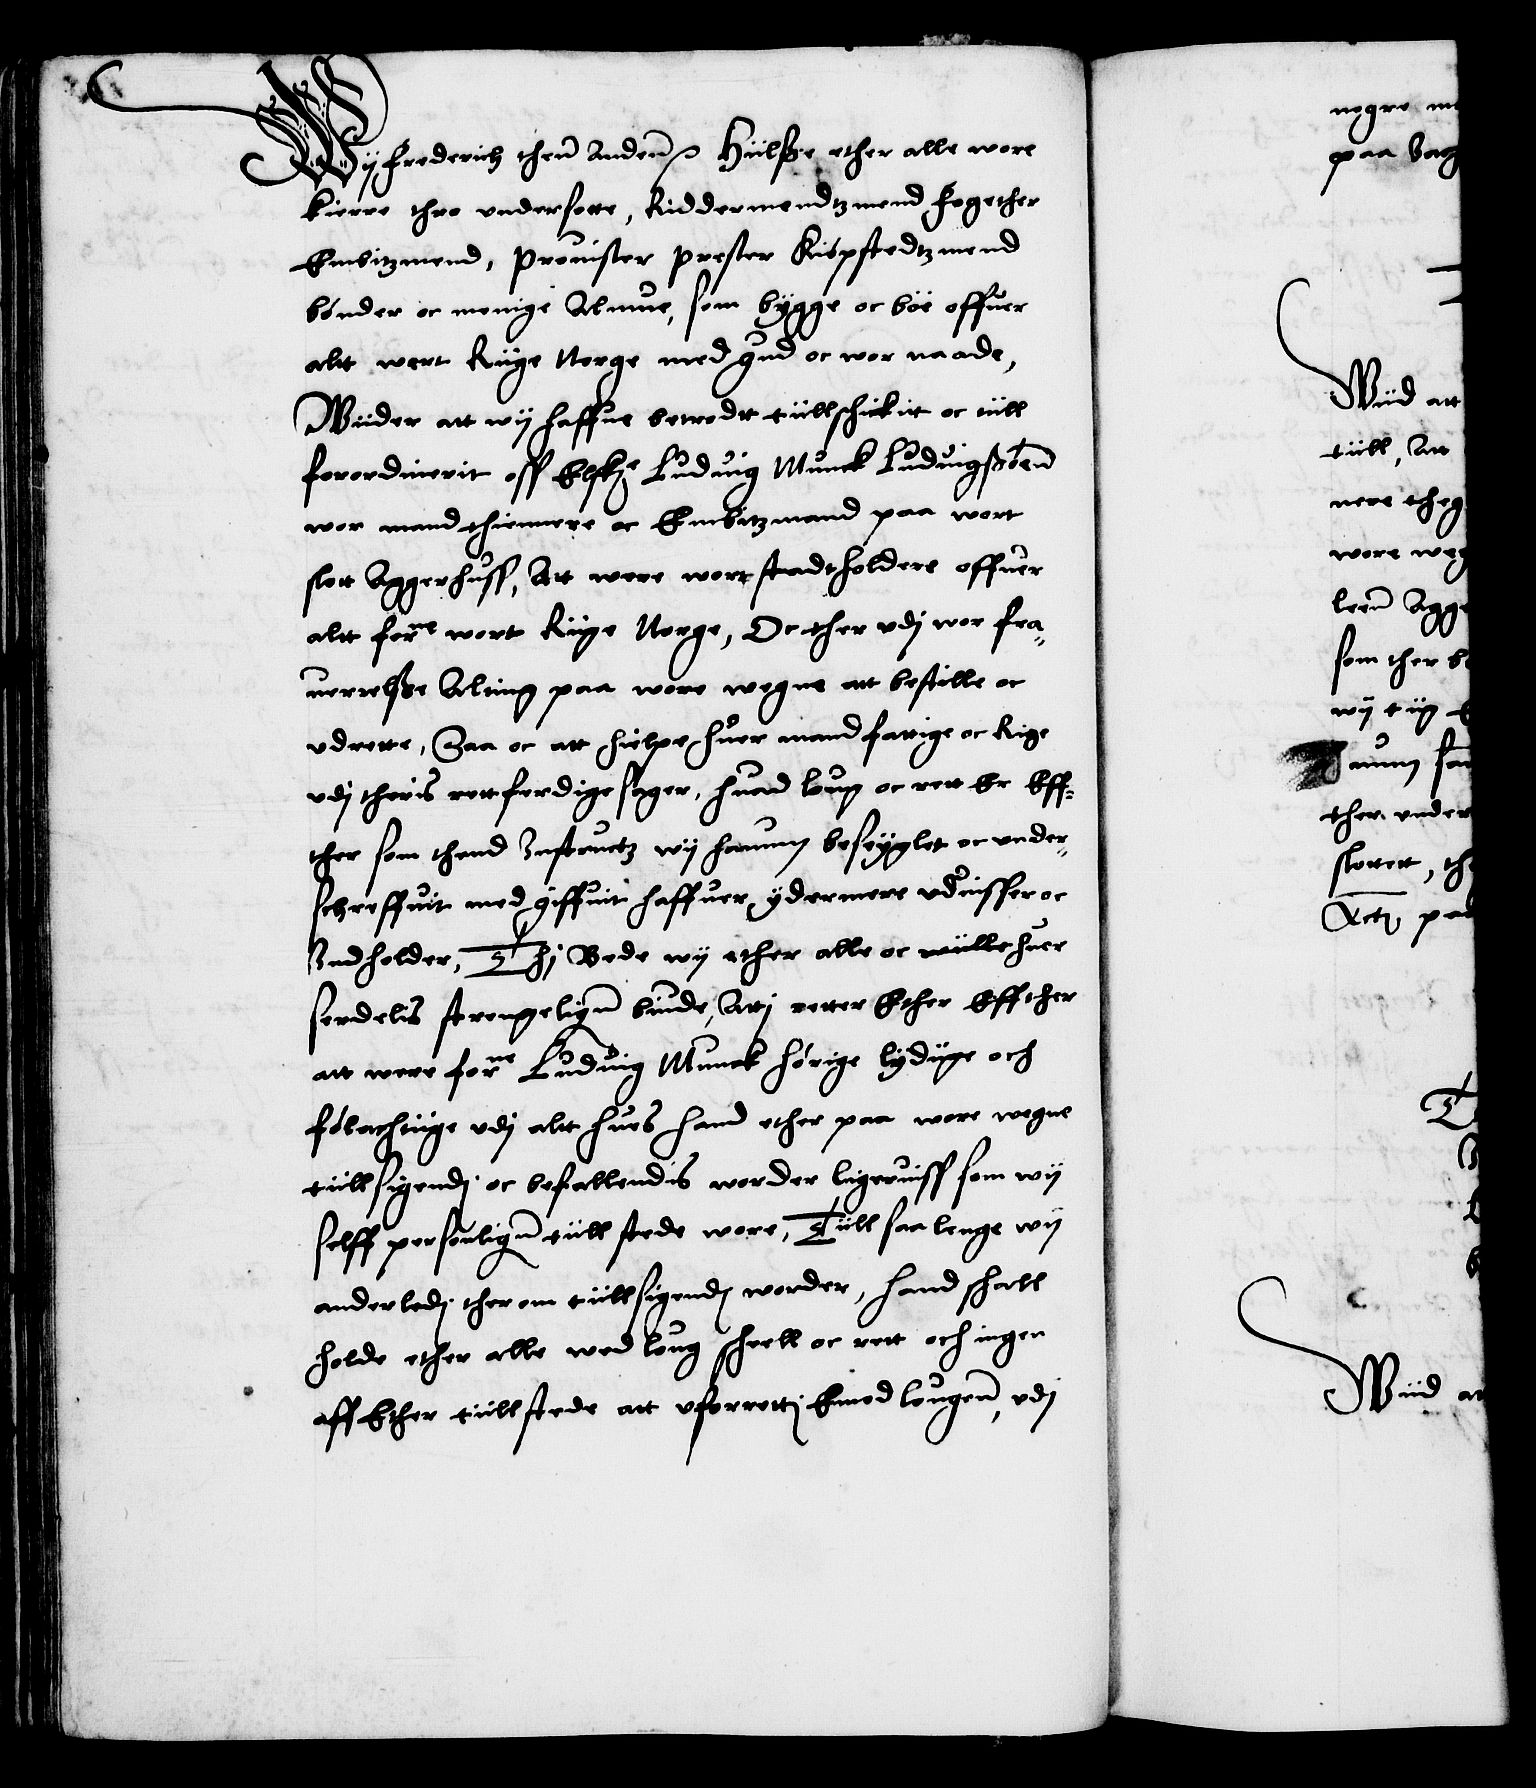 Wij Frederich thenn Andenn etc. Hiilße ether alle wore
kierre thro undersotte, Riddermendtzmend Fogether
Embitzmend, Prouister Prester Kiøpstedtzmend
bønder oc menige Almue, som bygge oc boe offuer
altt wort Riige Norge med gud oc wor naade,
Wiider att wij haffue betrodt tiillschickit oc tiill
forordinerit oss Elske. Ludvig Munck Ludvigßøenn
wor mand thiennere oc Embitzmand paa wort
slott Aggerhuss, Att were wor stadtholdere offuer
altt forne wort Riige Norge, Oc ther udj wor fra,,
uerrelße Alting paa wore wegne att bestille oc
udrette, Saa oc att hielpe huer mand fattige oc Rige
udj theris rettferdige sager, huad loug oc rett Er Eff=
ther som thend Instructz wij hannum beseyglet oc under,,
schreffuit med giffuit haffuer, ydermere uduisser oc
Indholder, Thj Bede wij ether alle oc wiille huer
serdelis strengeligenn biude, Attj retter Ether Effther
att were forne Ludvig Munck hørige lydiige och
følachtiige udj altt hues hand ether paa wore wegne
tiillsigendj oc befallendis worder ligeruiss som wij
selff personligenn tiill stede wore, Tiill saa lenge wij
anderledj therom tiillsigendj worder, hand schall
holde ether alle wed loug schell oc rett och ingen
aff Ether tiillstede att uforrettj Emod lougenn, udj
negre
paa
Wiid att
tiill, Att
nere
wore
leen
som ther
wij
ther under
slottett,
Actj
Wiid